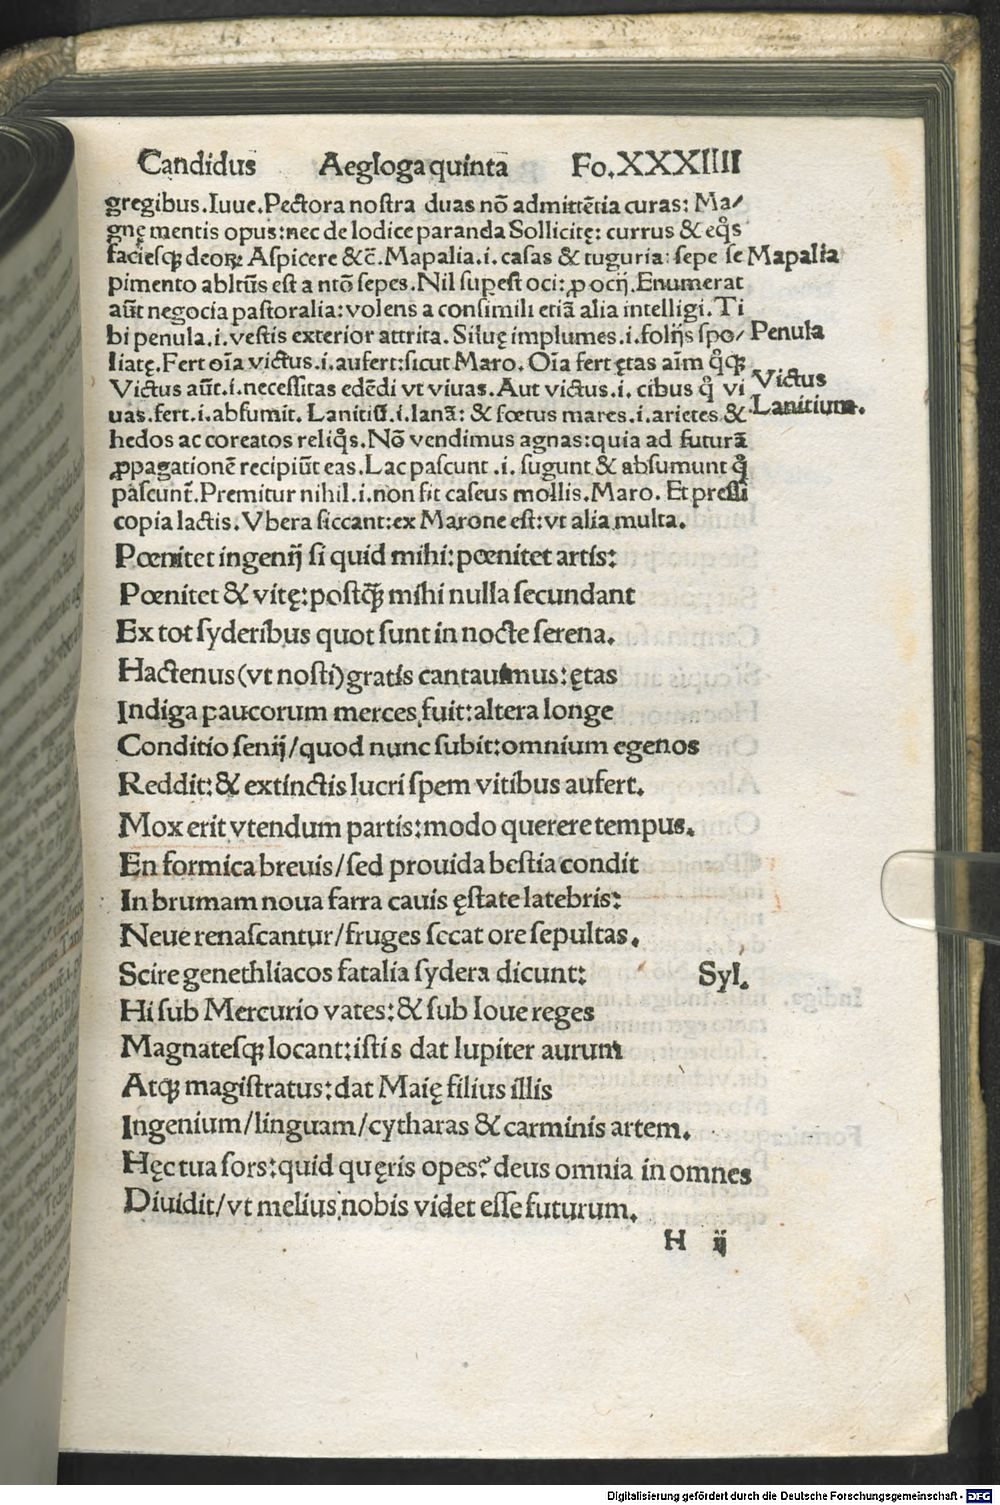 Candidus Aegloga quinta Fo. XXXIIII
gregibus. Iuue. Pectora nostra duas nõ admittẽtia curas: Ma/
gnę mentis opus: nec de lodice paranda Sollicitę: currus & eq̊s
faciesqꝫ deoꝝ Aspicere &c̃. Mapalia .i. casas & tuguria: sepe se Mapalia
pimento ablt̃s est a ntõ sepes. Nil supest oci: ꝓ ocij. Enumerat
aũt negocia pastoralia: volens a consimili etiã alia intelligi. Ti
bi penula .i. vestis exterior attrita. Siluę implumes .i. folijs spo/ Penula
liatę. Fert oĩa victus .i. aufert: sicut Maro. Oĩa fert ętas aĩm q̊qꝫ
Victus aũt .i. necessitas edẽdi vt viuas. Aut victus .i. cibus q̊ vi Victus
uas. fert .i. absumit. Lanitiũ .i. lanã: & fœtus mares .i. arietes & Lanitium.
hedos ac coreatos reliq̊s. Nõ vendimus agnas: quia ad futurã
ꝓpagationẽ recipiũt eas. Lac pascunt .i. sugunt & absumunt q̊
pascunt̃. Premitur nihil .i. non fit caseus mollis. Maro. Et pressi
copia lactis. Vbera siccant: ex Marone est: vt alia multa.
Pœnitet ingenij si quid mihi: pœnitet artis:
Pœnitet & vitę: postꝗꝫ mihi nulla secundant
Ex tot syderibus quot sunt in nocte serena.
Hactenus (vt nosti) gratis cantauimus: ętas
Indiga paucorum merces fuit: altera longe
Conditio senij / quod nunc subit: omnium egenos
Reddit: & extinctis lucri spem vitibus aufert.
Mox erit vtendum partis: modo querere tempus.
En formica breuis / sed prouida bestia condit
In brumam noua farra cauis ęstate latebris:
Neue renascantur / fruges secat ore sepultas.
Scire genethliacos fatalia sydera dicunt: Syl.
Hi sub Mercurio vates: & sub Ioue reges
Magnatesqꝫ locant: istis dat Iupiter aurum
Atqꝫ magistratus: dat Maię filius illis
Ingenium / linguam / cytharas & carminis artem.
Hęc tua sors: quid quęris opes? deus omnia in omnes
Diuidit / vt melius nobis videt esse futurum.
H ij
Digitalisierung gefördert durch die Deutsche Forschungsgemeinschaft - DFG